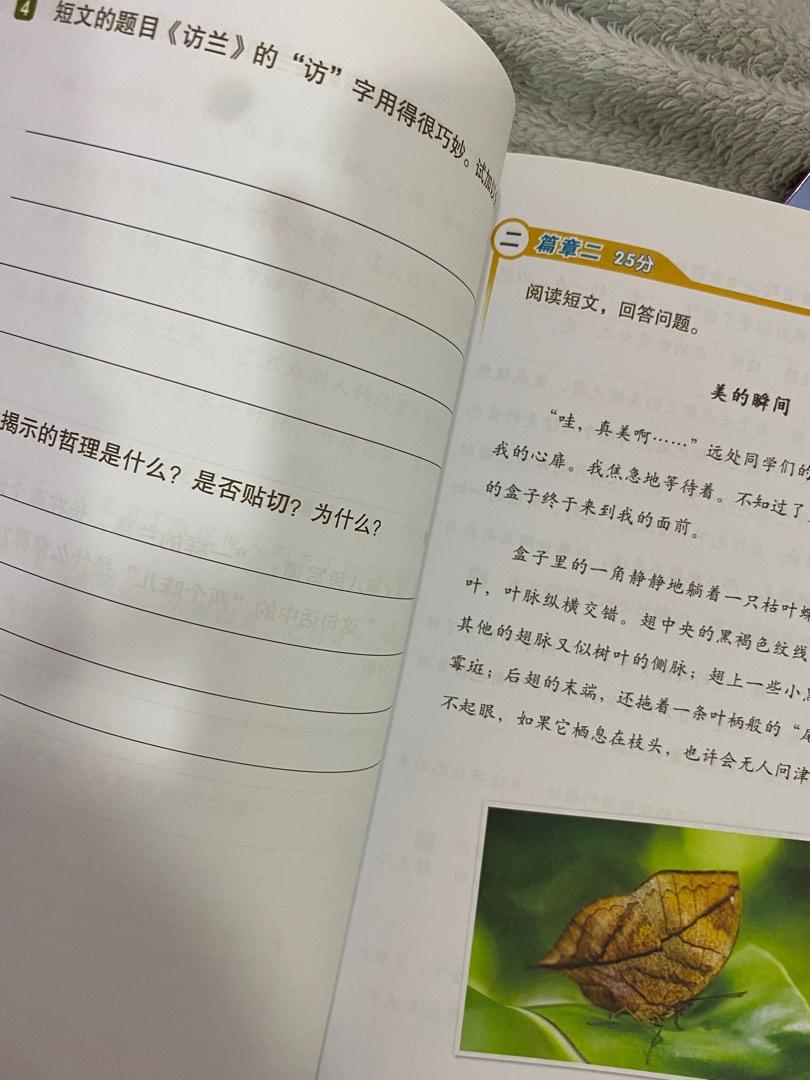 4 短文的题目《访兰》的“访”字用得很巧妙。试加以
揭示的哲理是什么？是否贴切？为什么？
二 篇章二 25分
阅读短文，回答问题。
美的瞬间
“哇，真美啊……”远处同学们的
我的心扉。我焦急地等待着。不知过了
的盒子终于来到我的面前。
盒子里的一角静静地躺着一只枯叶蝶
叶，叶脉纵横交错。翅中央的黑褐色纹线
其他的翅脉又似树叶的侧脉；翅上一些小黑
霉斑；后翅的末端，还拖着一条叶柄般的“尾
不起眼，如果它栖息在枝头，也许会无人问津